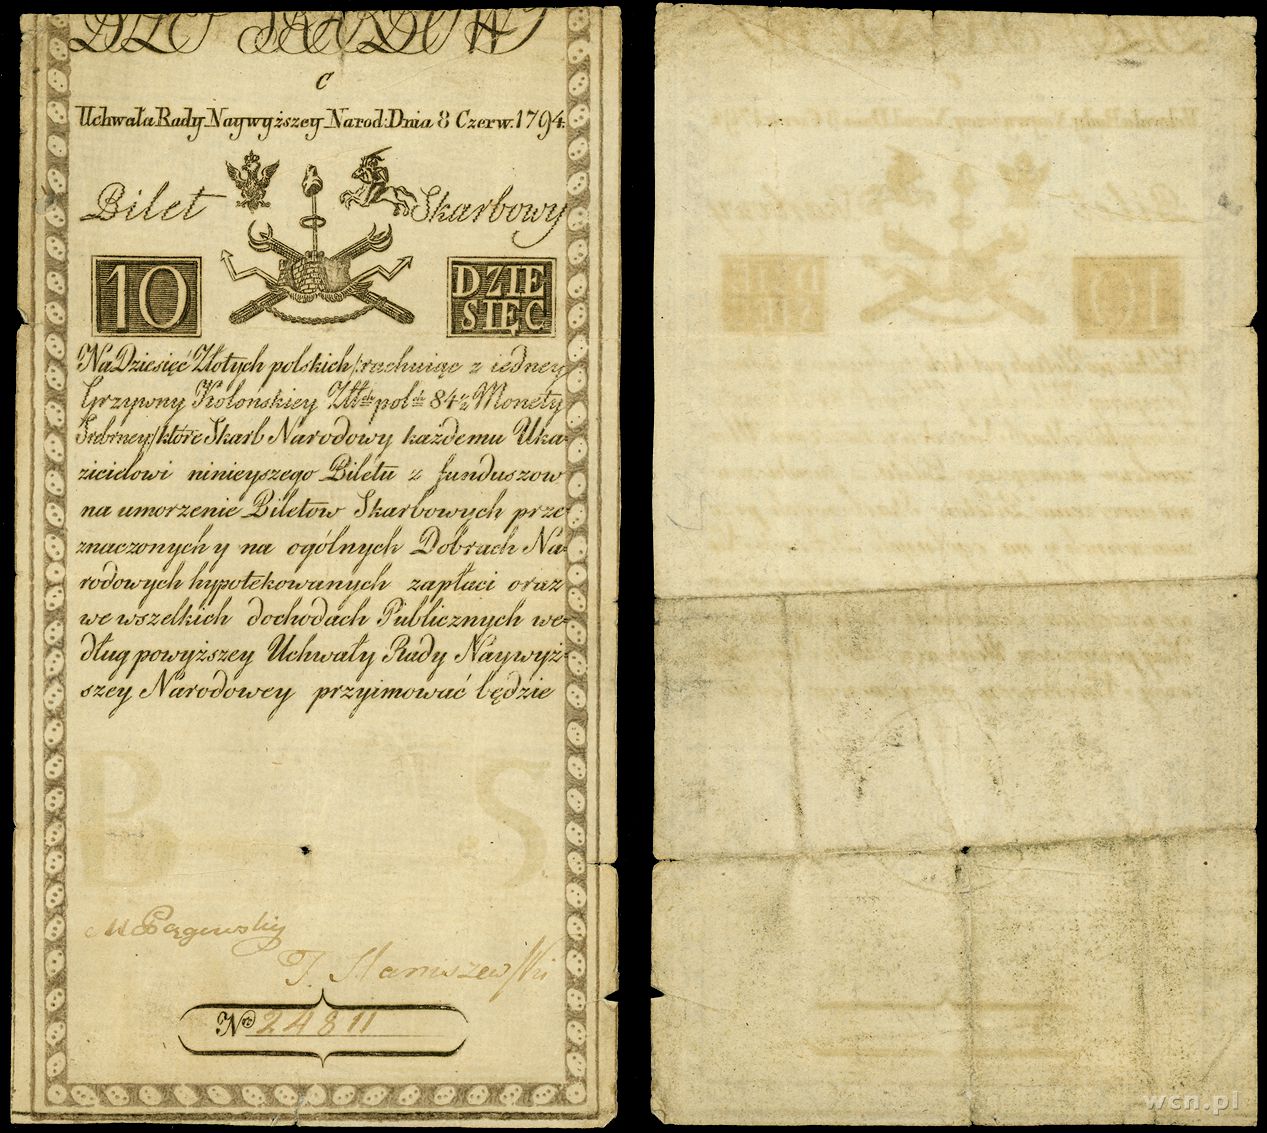 C
Uchwała Rady Naywyższey Narod: Dnia 8 Czerw. 1794.
Bilet Skarbowy
10 DZIE
SIĘC
Na Dziesięć Złotych polskich /:rachuiąc z iedney
Grzywny Kolońskiey Złtch polch 84 1/2 Monety
Srebrney:/ które Skarb Narodowy każdemu Uka-
zicielowi ninieyszego Biletu z funduszow
na umorzenie Biletow Skarbowych prze-
znaczonych y na ogólnych Dobrach Na-
rodowych hypotekowanych zapłaci oraz
we wszelkich dochodach Publicznych we-
dług powyższey Uchwały Rady Naywyż-
szey Narodowey przyimować będzie
B S
M Pągowski
T. Staniszewski
Nro 24811
wcn.pl